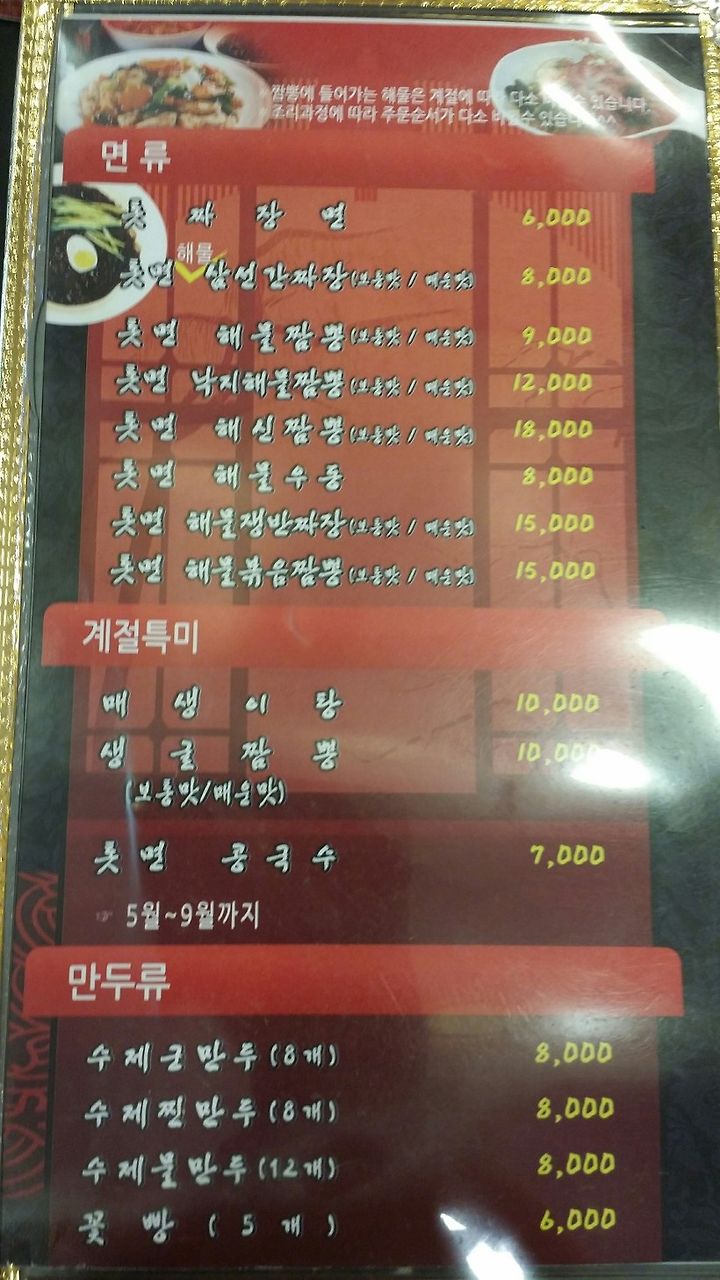 짬뽕에 들어가는 해물은 계절에 따라 다소 수 있습니다.
조리과정에 따라 주문순서가 다소 바뀔수 있습니다.^^
면 류
톳 짜 장 면 6,000
해물
톳면 삼선간짜장(보통맛 / 매운맛) 8,000
톳면 해물짬뽕(보통맛 / 매운맛) 9,000
톳면 낙지해물짬뽕(보통맛 / 매운맛) 12,000
톳면 해신짬뽕(보통맛 / 매운맛) 18,000
톳면 해물우동 8,000
톳면 해물쟁반짜장(보통맛 / 매운맛) 15,000
톳면 해물볶음짬뽕(보통맛 / 매운맛) 15,000
계절특미
매 생 이 탕 10,000
생 굴 짬 뽕 10,000
(보통맛/매운맛)
톳면 콩국수 7,000
☞ 5월~9월까지
만두류
수제군만두(8개) 8,000
수제찐만두(8개) 8,000
수제물만두(12개) 8,000
꽃 빵 ( 5 개 ) 6,000